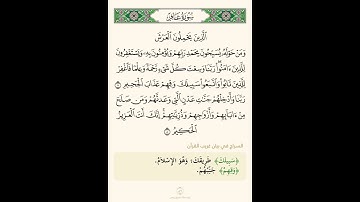 سُورَةُ غَافِرٍ
ٱلَّذِينَ يَحْمِلُونَ ٱلْعَرْشَ
وَمَنْ حَوْلَهُۥ يُسَبِّحُونَ بِحَمْدِ رَبِّهِمْ وَيُؤْمِنُونَ بِهِۦ وَيَسْتَغْفِرُونَ
لِلَّذِينَ ءَامَنُوا۟ رَبَّنَا وَسِعْتَ كُلَّ شَىْءٍ رَّحْمَةً وَعِلْمًا فَٱغْفِرْ
لِلَّذِينَ تَابُوا۟ وَٱتَّبَعُوا۟ سَبِيلَكَ وَقِهِمْ عَذَابَ ٱلْجَحِيمِ ٧
رَبَّنَا وَأَدْخِلْهُمْ جَنَّٰتِ عَدْنٍ ٱلَّتِى وَعَدتَّهُمْ وَمَن صَلَحَ
مِنْ ءَابَآئِهِمْ وَأَزْوَٰجِهِمْ وَذُرِّيَّٰتِهِمْ إِنَّكَ أَنتَ ٱلْعَزِيزُ
ٱلْحَكِيمُ ٨
السراج في بيان غريب القرآن
﴿سَبِيلَكَ﴾ طَرِيقَكَ؛ وَهُوَ الْإِسْلَامُ.
﴿وَقِهِمْ﴾ جَنِّبْهُمْ.